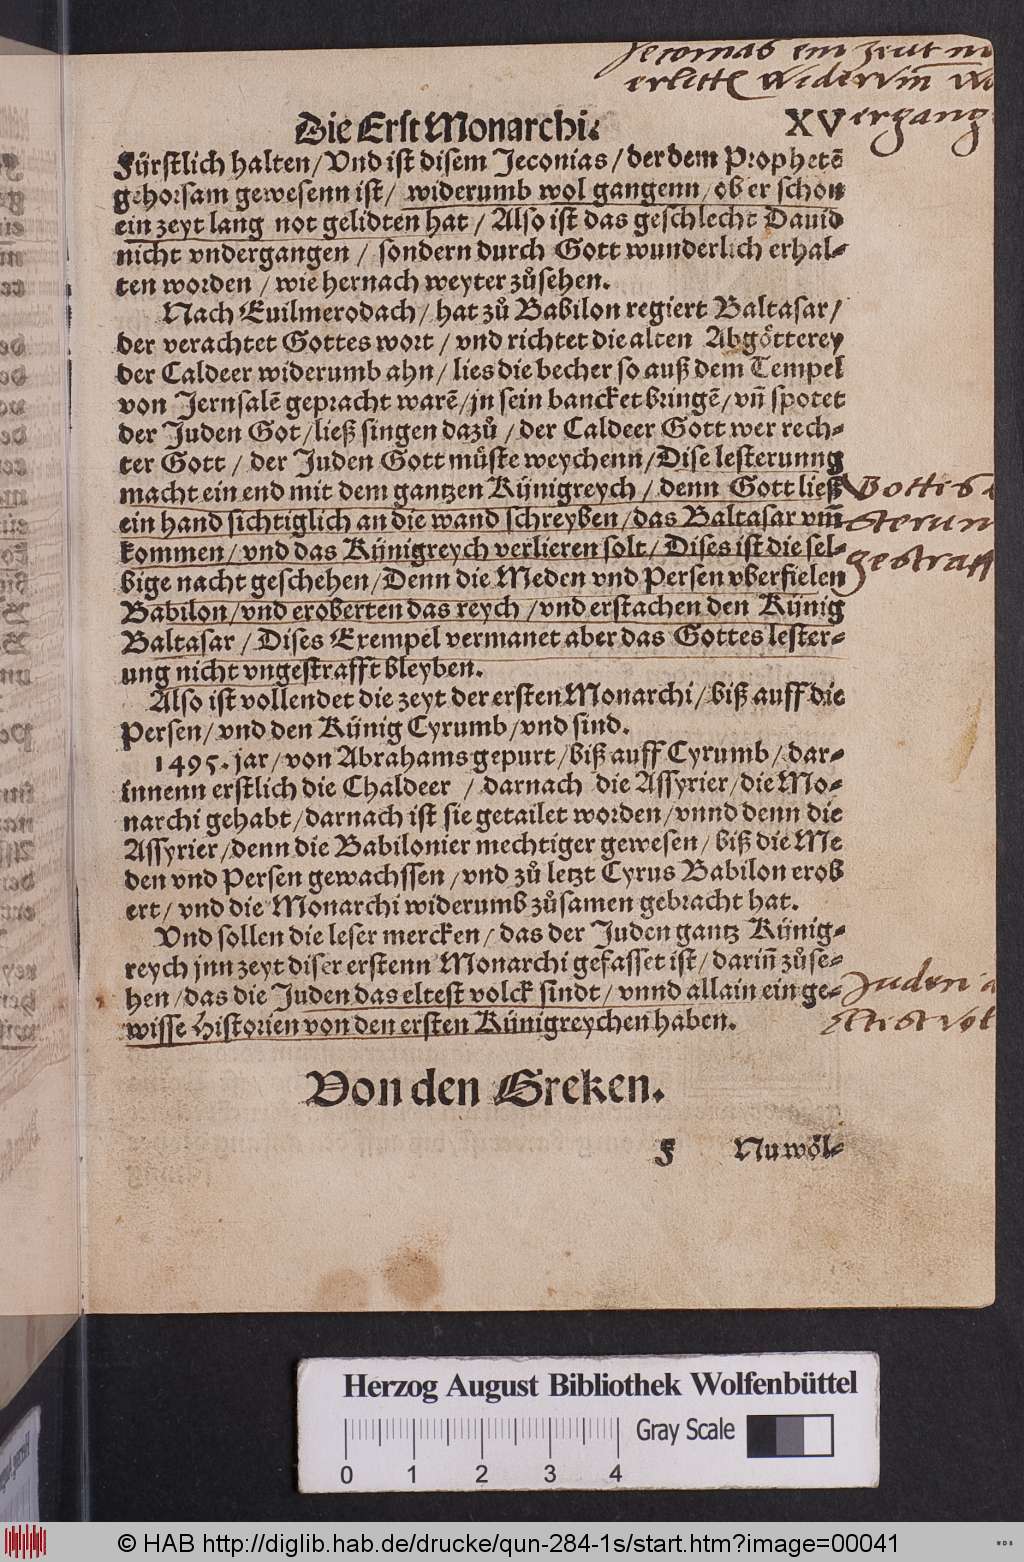 Jeconias ein zeit
erlitte widerum
ergang
Die Erst Monarchi.
XV
Fürstlich halten/ Vnd ist disem Jeconias/ der dem Prophetē
gehorsam gewesenn ist/ widerumb wol gangenn/ ob er schon
ein zeyt lang not gelidten hat/ Also ist das geschlecht Dauid
nicht vndergangen/ sondern durch Gott wunderlich erhal-
ten worden/ wie hernach weyter zůsehen.
Nach Euilmerodach/ hat zů Babilon regiert Baltasar/
der verachtet Gottes wort/ vnd richtet die alten Abgötterey
der Caldeer widerumb ahn/ lies die becher so auß dem Tempel
von Jernsalē gepracht warē/ jn sein bancket bringē/ vñ spotet
der Juden Got/ ließ singen dazů/ der Caldeer Gott wer rech-
ter Gott/ der Juden Gott müste weychenn/ Dise lesterunng
macht ein end mit dem gantzen Künigreych/ denn Gott ließ
ein hand sichtiglich an die wand schreyben/ das Baltasar vm̄
kommen/ vnd das Künigreych verlieren solt/ Dises ist die sel-
bige nacht geschehen/ Denn die Meden vnd Persen vberfielen
Babilon/ vnd eroberten das reych/ vnd erstachen den Künig
Baltasar/ Dises Exempel vermanet aber das Gottes lester-
ung nicht vngestrafft bleyben.
Gottes
sterun
gestraff
Also ist vollendet die zeyt der ersten Monarchi/ biß auff die
Persen/ vnd den Künig Cyrumb/ vnd sind.
1495. jar/ von Abrahams gepurt/ biß auff Cyrumb/ dar-
innenn erstlich die Chaldeer/ darnach die Assyrier/ die Mo-
narchi gehabt/ darnach ist sie getailet worden/ vnnd denn die
Assyrier/ denn die Babilonier mechtiger gewesen/ biß die Me
den vnd Persen gewachssen/ vnd zů letzt Cyrus Babilon erob
ert/ vnd die Monarchi widerumb zůsamen gebracht hat.
Vnd sollen die leser mercken/ das der Juden gantz Künig-
reych jnn zeyt diser erstenn Monarchi gefasset ist/ dariñ zůse-
hen/ das die Juden das eltest volck sindt/ vnnd allain ein ge-
wisse Historien von den ersten Künigreychen haben.
Juden
eltist vol
Von den Greken.
F Nu wöl-
Herzog August Bibliothek Wolfenbüttel
Gray Scale
0 1 2 3 4
© HAB http://diglib.hab.de/drucke/qun-284-1s/start.htm?image=00041